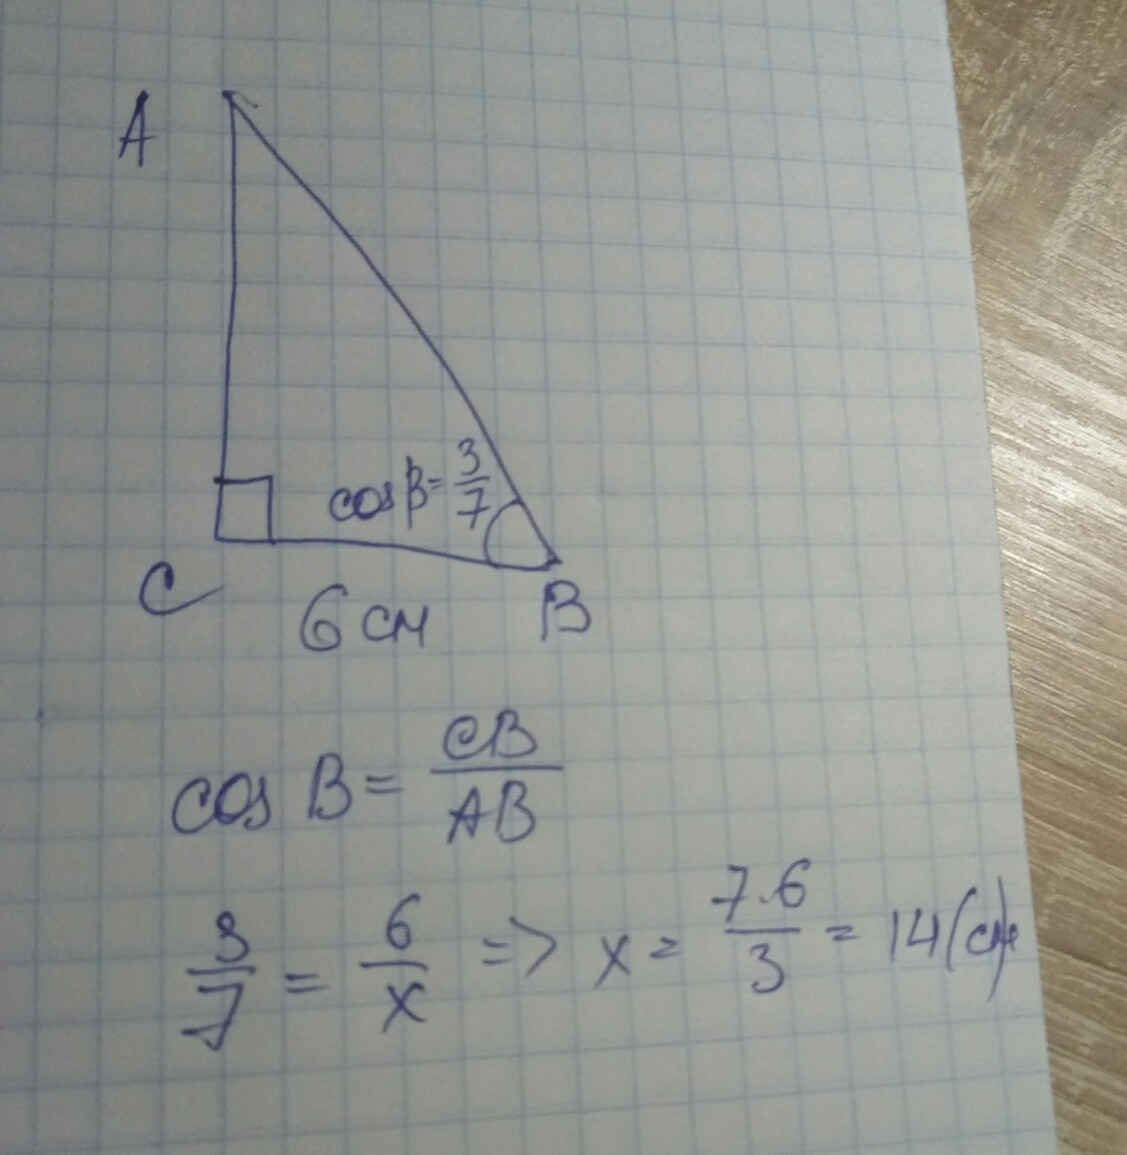 A
cos β = 3/7
C
6 см
B
cos B = CB/AB
3/7 = 6/x => x = 7·6/3 = 14 (см)